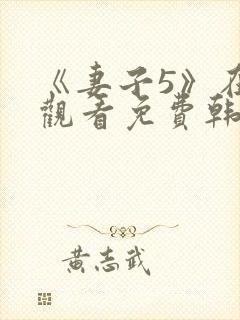 《妻子5》在
觀看免費韓
黃志武